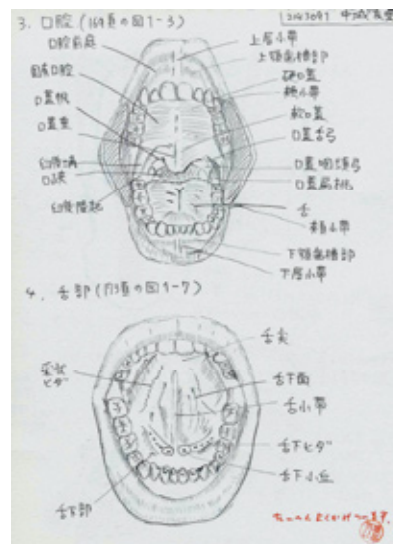 3. 口腔(169頁の図1-3)
口腔前庭
固有口腔
口蓋帆
口蓋垂
臼後溝
口峡
臼後隆起
上唇小帯
上顎歯槽部
硬口蓋
頬小帯
軟口蓋
口蓋舌弓
口蓋咽頭弓
口蓋扁桃
舌
頬小帯
下顎歯槽部
下唇小帯
4. 舌部(173頁の図1-7)
采状
ヒダ
舌下部
舌尖
舌下面
舌小帯
舌下ヒダ
舌下小丘